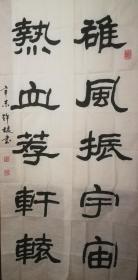 雄風振宇宙
熱血荐軒轅
辛未